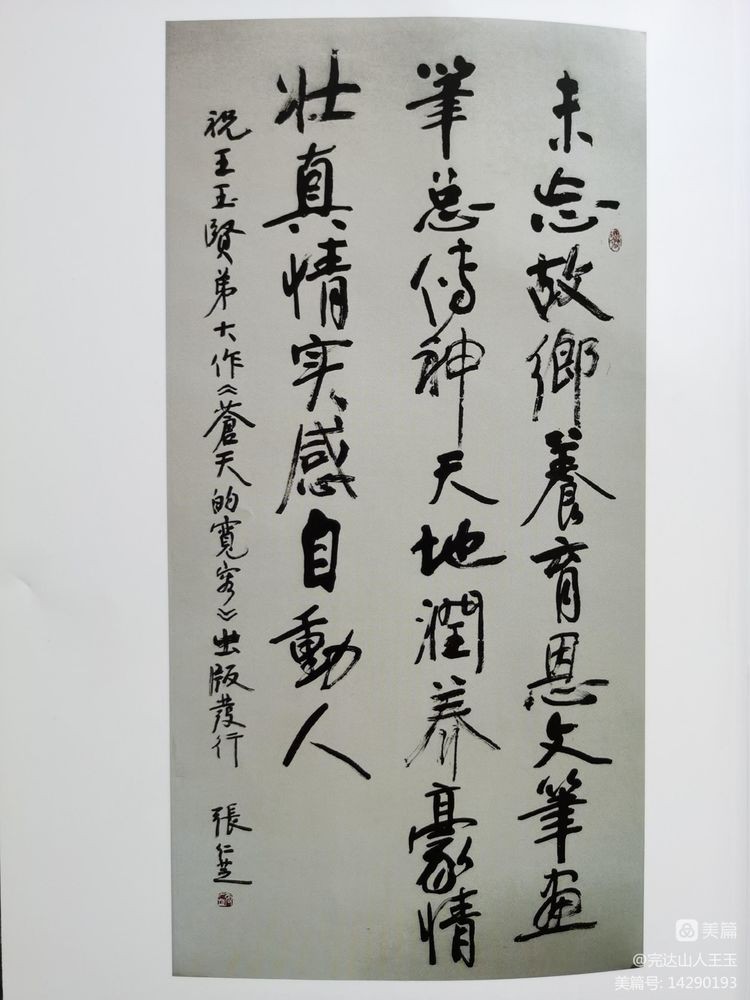 未忘故鄉養育恩文筆畫
筆總傳神天地潤养豪情
壮真情实感自動人
祝王玉賢弟大作《蒼天的寬容》出版發行
張仁芝
美篇
@完达山人王玉
美篇号: 14290193